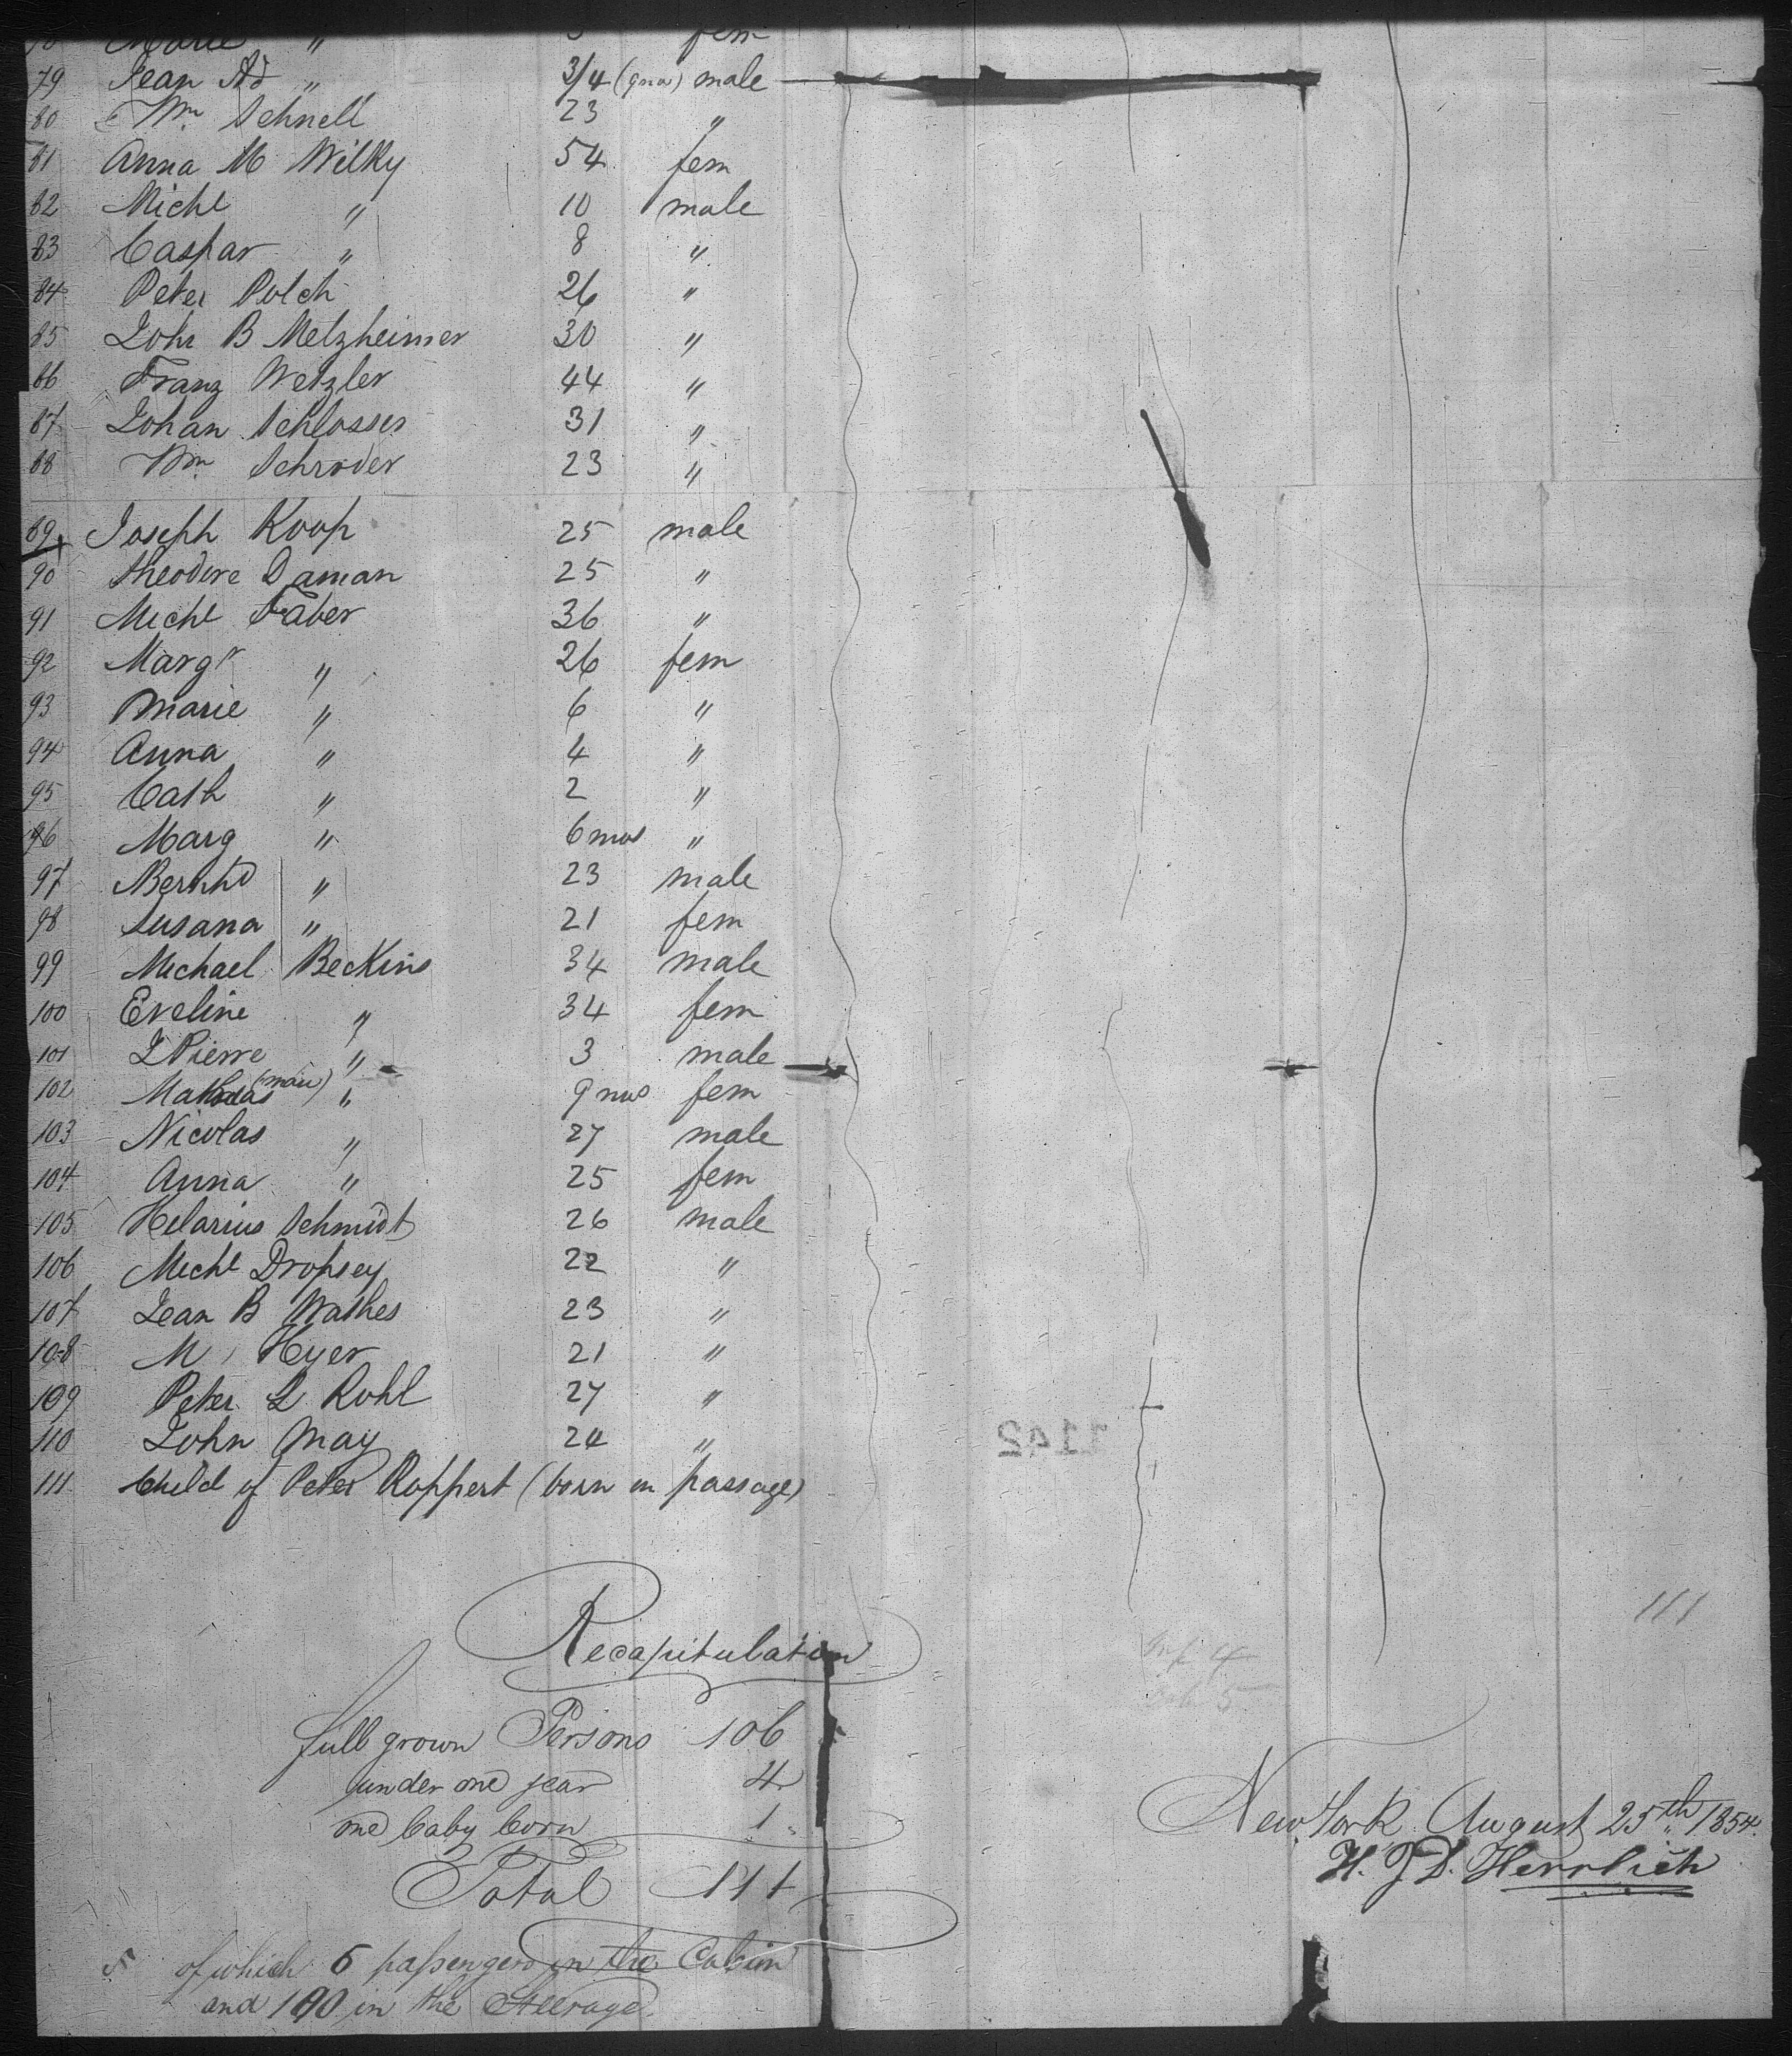 78 Marie " 3 fem
79 Jean Ad " 3/4 (9mo) male
80 Wm Schnell 23 "
81 Anna M Wilky 54 fem
82 Michl " 10 male
83 Caspar " 8 "
84 Peter Polch 26 "
85 Joh B Metzheimer 30 "
86 Franz Wetzler 44 "
87 Johan Schlosser 31 "
88 Wm Schroder 23 "
89 Joseph Koop 25 male
90 Theodore Daman 25 "
91 Michl Faber 36 "
92 Margr " 26 fem
93 Marie " 6 "
94 Anna " 4 "
95 Cath " 2 "
96 Marg " 6 mos "
97 Bernhd " 23 male
98 Susana " 21 fem
99 Michael Beckins 34 male
100 Eveline " 34 fem
101 J Pierre " 3 male
102 (marie) " 9 mos fem
103 Nicolas " 27 male
104 Anna " 25 fem
105 Helarius Schmidt 26 male
106 Michl Dropsey 22 "
107 Jean B Mathes 23 "
108 M Hyer 21 "
109 Peter L Rohl 27 "
110 John May 24 "
111 Child of Peter Roppert (born on passage)
1142
111
Recapitulation
full grown Persons 106
under one year 4
one baby born 1
Total 111
New York August 25th 1854
H. J. D. Herrlich
of which 6 passengers in the Cabin
and 100 in the Steerage